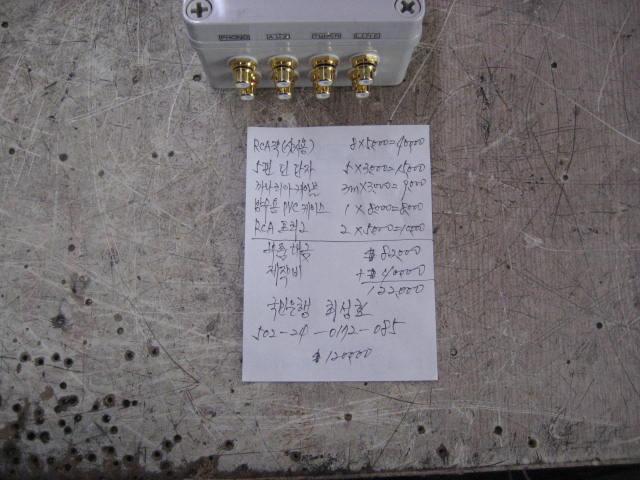 PHONO AUX TUNER
RCA 잭(상하용) 8×5000=40000
5핀 딘 단자 5×3000=15000
카나리아 케이블 3m×3000=9000
방수용 PVC 케이스 1×8000=8000
RCA 2 2×5000=10000
82000
제작비 + 40000
122,000
국민은행 최성호
502-24-0172-085
120000